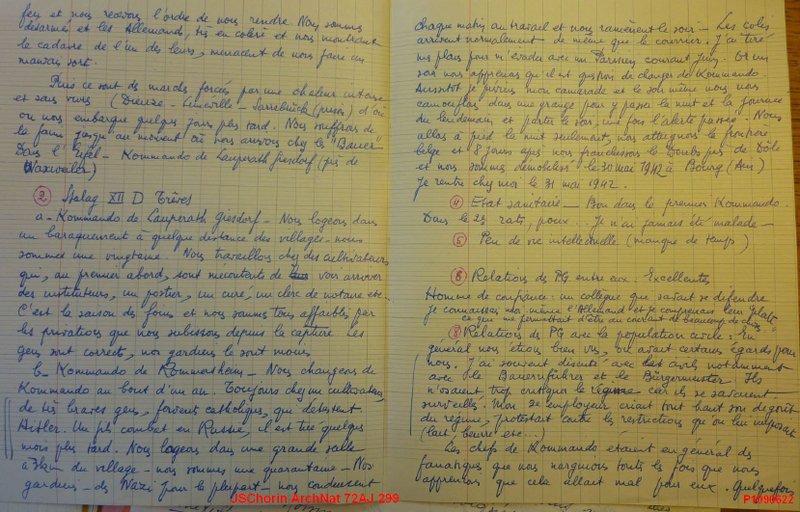 feu et nous recevons l'ordre de nous rendre. Nous sommes
désarmés et les Allemands, très en colère et nous montrant
le cadavre de l'un des leurs, menacent de nous faire un
mauvais sort.
Puis ce sont des marches forcées par une chaleur intense
et sans vivres (Dieuze - Lunéville - Sarrebrück (prison) d'où
on nous embarque quelques jours plus tard. Nous souffrons de
la faim jusqu'au moment où nous arrivons chez les "Bauer"
Dans l'Eifel - Kommando de Lauperath Giesdorf (près de
Waxweiler)
② Stalag XII D Trèves
a - Kommando de Lauperath Giesdorf - Nous logeons dans
un baraquement à quelque distance des villages - nous
sommes une vingtaine. Nous travaillons chez des cultivateurs
qui, au premier abord, sont mécontents de voir arriver
des instituteurs, un postier, un curé, un clerc de notaire etc -
C'est la saison des foins et nous sommes tous affaiblis par
les privations que nous subissons depuis la capture. Les
gens sont corrects, nos gardiens le sont moins
b - Kommando de Kommersheim - Nous changeons de
Kommando au bout d'un an. Toujours chez un cultivateur,
de très braves gens, fervents catholiques, qui détestent
Hitler. Un fils combat en Russie, il est tué quelques
mois plus tard. Nous logeons dans une grande salle
à du village - nous sommes une quarantaine - Nos
gardiens - des Nazi pour la plupart - nous conduisent
chaque matin au travail et nous ramènent le soir - Les colis
arrivent normalement de même que le courrier. J'ai tiré
mes plans pour m'évader avec un Parisien courant Juin. Or un
soir nous apprenons qu'il est question de changer de Kommando.
Aussitôt je préviens mon camarade et le soir même nous nous
camouflons dans une grange pour y passer la nuit et la journée
du lendemain et partir le soir, une fois l'alerte passée. Nous
allons à pied la nuit seulement, nous atteignons la frontière
belge et 8 jours après nous franchissons le Doubs près de Dôle
et nous sommes démobilisés le 30 mai 1942 à Bourg (Ain)
Je rentre chez moi le 31 mai 1942.
④ Etat sanitaire - Bon dans le premier Kommando.
Dans le 2è rats, poux... Je n'ai jamais été malade -
⑤ Peu de vie intellectuelle (manque de temps)
⑥ Relations des PG entre eux : Excellentes
Homme de confiance : un collègue que savait se défendre.
Je connaissais moi-même l'Allemand et je comprenais leur "platt"
ce qui me permettait d'être au courant de beaucoup de choses
⑧ Relations des PG avec la population civile : En
général nous étions bien vus, on avait certains égards pour
nous. J'ai souvent discuté avec les civils notamment
avec le Bauernführer et le Bürgermeister. Ils
n'osaient trop critiquer le régime car ils se savaient
surveillés. Mon 2è employeur criait tout haut son dégoût
du régime, protestait contre les restrictions qu'on lui imposait
(lait, beurre etc...)
Les chefs de Kommando étaient en général des
fanatiques que nous narguions toutes les fois que nous
apprenions que cela allait mal pour eux. Quelquefois
JSChorin ArchNat 72AJ 299
P1090622